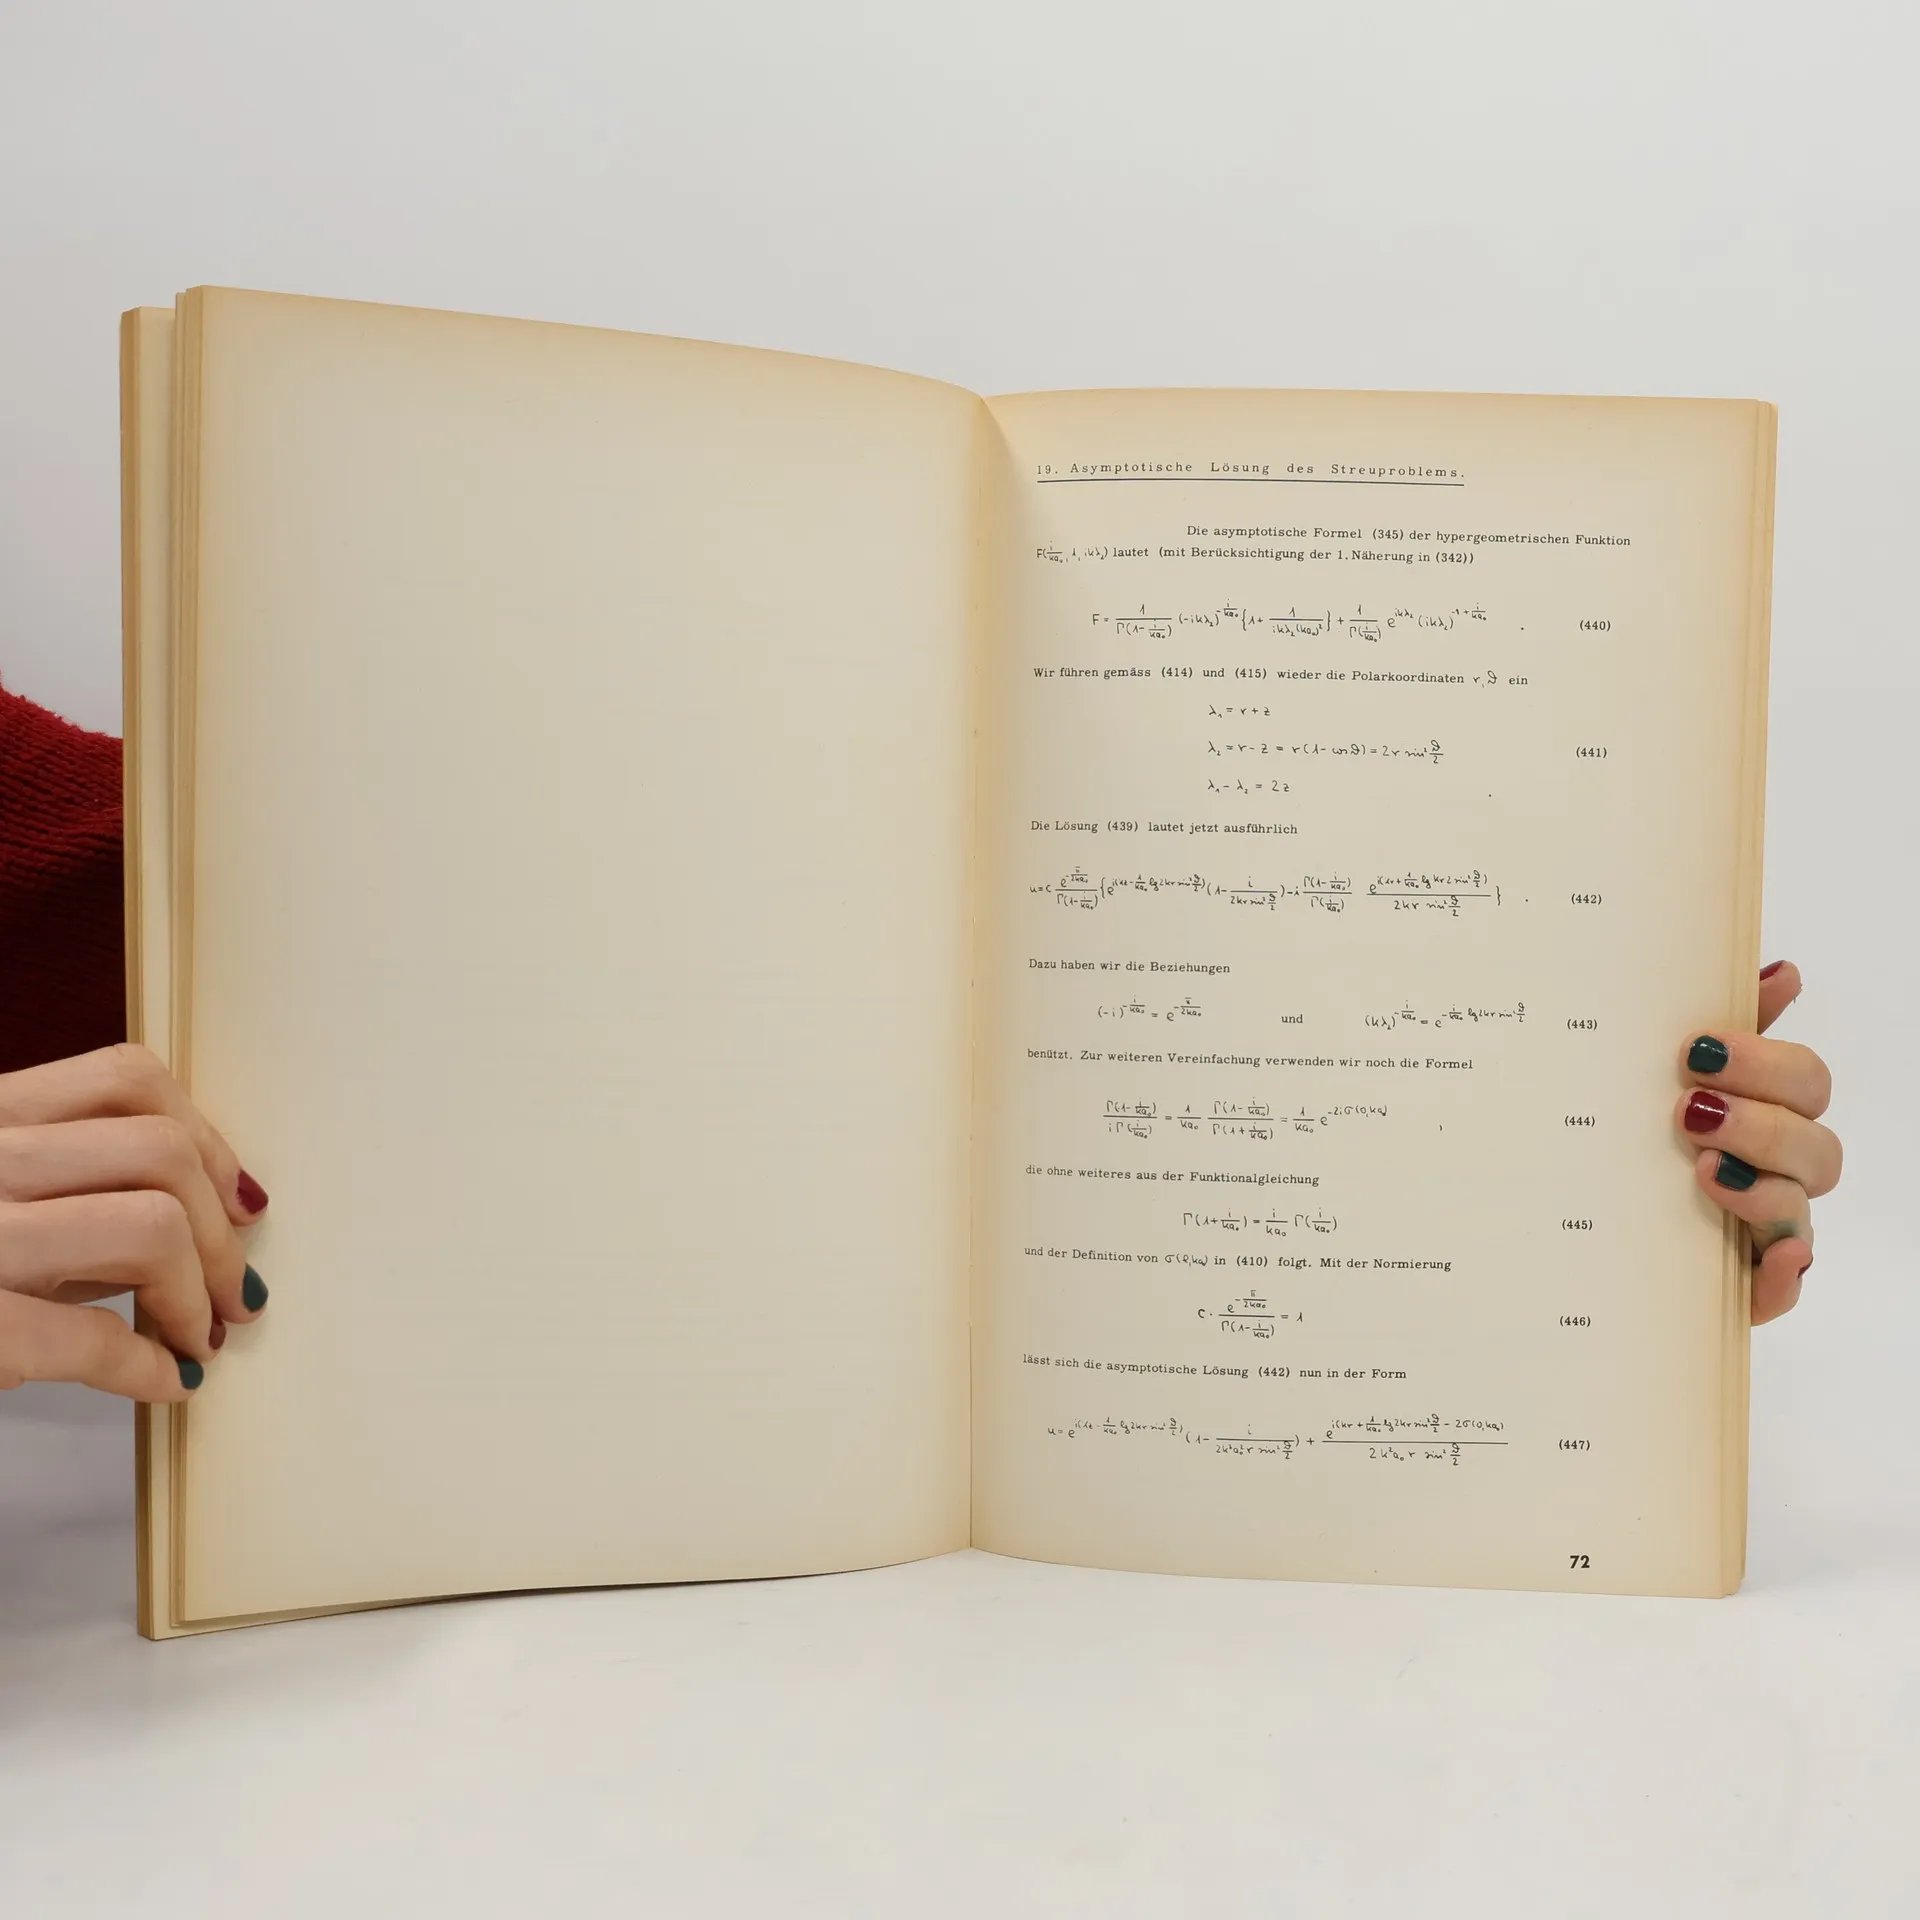 19. Asymptotische Lösung des Streuproblems.
Die asymptotische Formel (345) der hypergeometrischen Funktion
F(i/ka₀, 1, ikλ₂) lautet (mit Berücksichtigung der 1. Näherung in (342))
F = 1/Γ(1-i/ka₀) (-ikλ₂)^(-i/ka₀) {1+ 1/(ikλ₂(ka₀)²)} + 1/Γ(i/ka₀) e^(ikλ₂) (ikλ₂)^(-1+i/ka₀) . (440)
Wir führen gemäss (414) und (415) wieder die Polarkoordinaten r, ϑ ein
λ₁ = r + z
λ₂ = r - z = r(1-cosϑ) = 2r sin² ϑ/2 (441)
λ₁ - λ₂ = 2z .
Die Lösung (439) lautet jetzt ausführlich
u = c e^(-π/2ka₀)/Γ(1-i/ka₀) {e^(i(kz - 1/ka₀ lg 2kr sin² ϑ/2)) (1- i/(2kr sin² ϑ/2)) - i Γ(1-i/ka₀)/Γ(i/ka₀) e^(i(kr + 1/ka₀ lg kr 2 sin² ϑ/2))/(2kr sin² ϑ/2)} . (442)
Dazu haben wir die Beziehungen
(-i)^(-i/ka₀) = e^(-π/2ka₀) und (kλ₂)^(-i/ka₀) = e^(-i/ka₀ lg 2kr sin² ϑ/2) (443)
benützt. Zur weiteren Vereinfachung verwenden wir noch die Formel
Γ(1-i/ka₀)/(iΓ(i/ka₀)) = 1/ka₀ Γ(1-i/ka₀)/Γ(1+i/ka₀) = 1/ka₀ e^(-2iσ(0,ka₀)) , (444)
die ohne weiteres aus der Funktionalgleichung
Γ(1+i/ka₀) = i/ka₀ Γ(i/ka₀) (445)
und der Definition von σ(ℓ,ka₀) in (410) folgt. Mit der Normierung
c · e^(-π/2ka₀)/Γ(1-i/ka₀) = 1 (446)
lässt sich die asymptotische Lösung (442) nun in der Form
u = e^(i(kz - 1/ka₀ lg 2kr sin² ϑ/2)) (1- i/(2k³a₀²r sin² ϑ/2)) + e^(i(kr + 1/ka₀ lg 2kr sin² ϑ/2 - 2σ(0,ka₀))/(2k²a₀r sin² ϑ/2) (447)
72